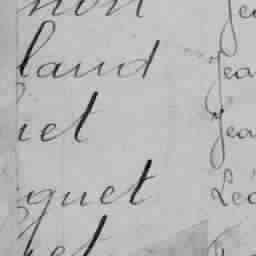 non Je
land Jea
iet Jea
quet Léo
et